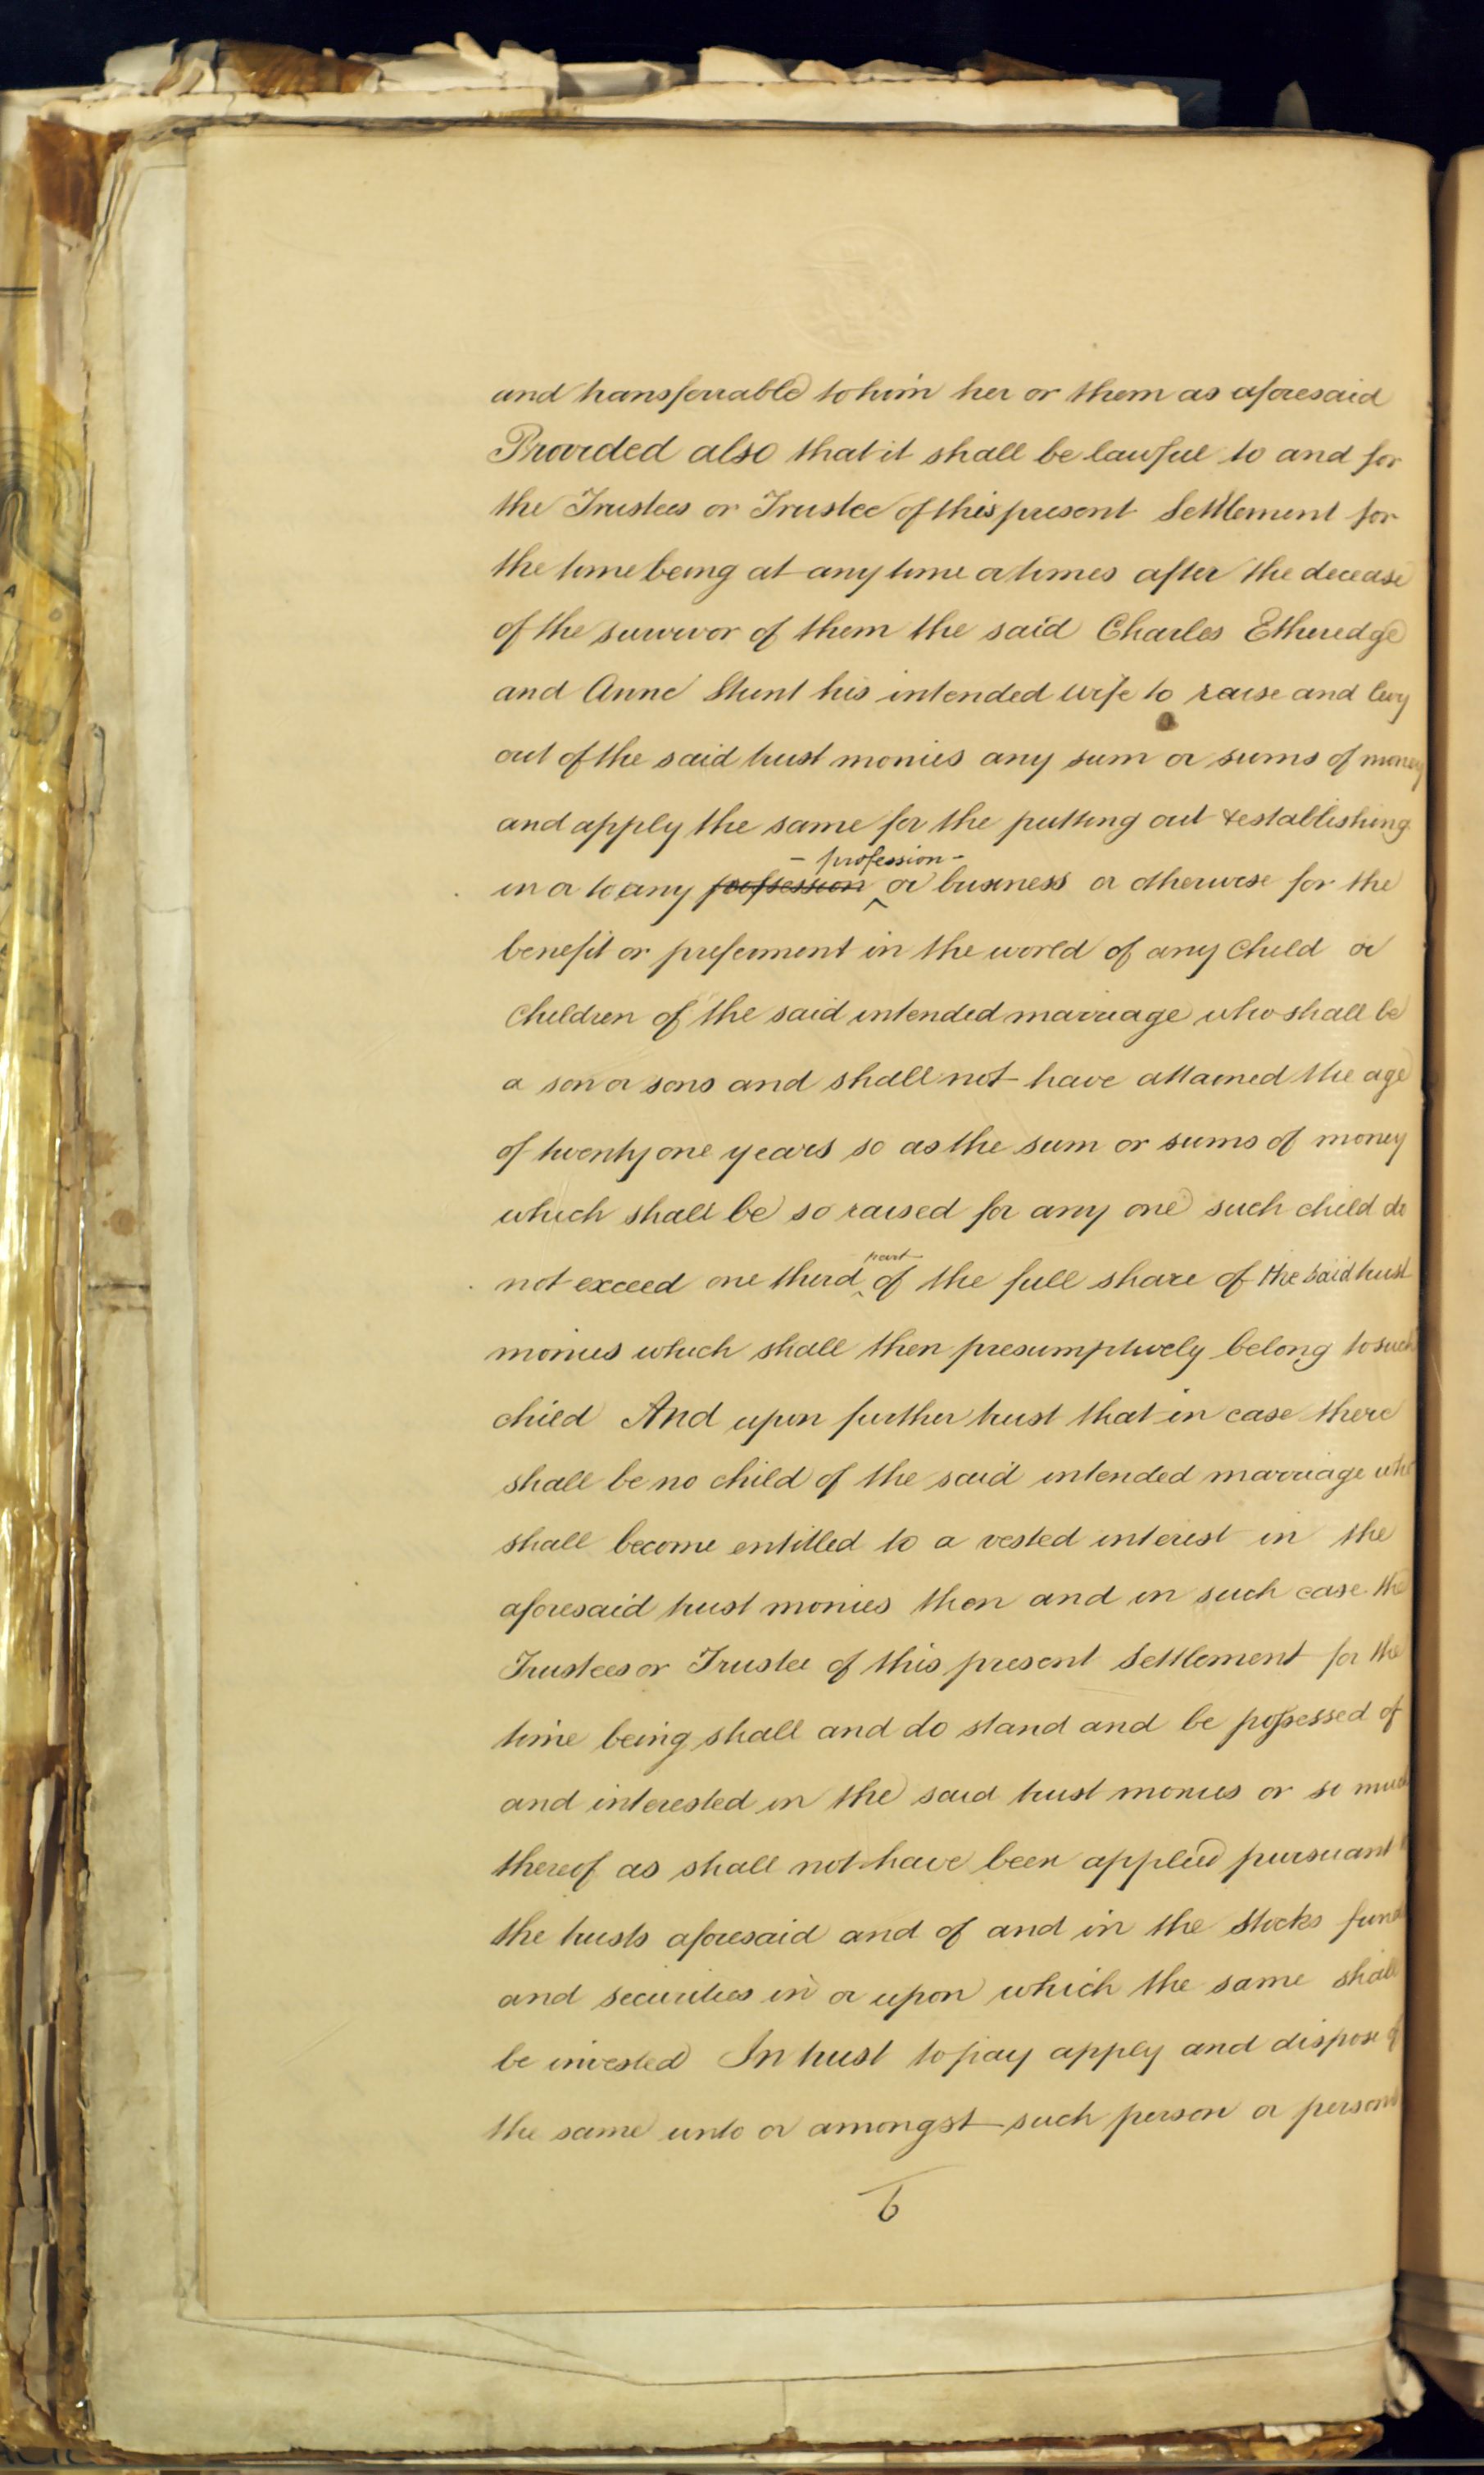 and transferrable to him her or them as aforesaid
Provided also that it shall be lawful to and for
the Trustees or Trustee of this present Settlement for
the time being at any time or times after the decease
of the survivor of them the said Charles Etheredge
and Anne Stunt his intended wife to raise and levy
out of the said trust monies any sum or sums of money
and apply the same for the putting out & establishing
- profession -
in or to any possession or business or otherwise for the
benefit or preferment in the world of any Child or
Children of the said intended marriage who shall be
a son or sons and shall not have attained the age
of twenty one years so as the sum or sums of money
which shall be so raised for any one such child do
part
not exceed one third of the full share of the said trust
monies which shall then presumptively belong to such
child And upon further trust that in case there
shall be no child of the said intended marriage who
shall become entitled to a vested interest in the
aforesaid trust monies then and in such case the
Trustees or Trustee of this present Settlement for the
time being shall and do stand and be possessed of
and interested in the said trust monies or so much
thereof as shall not have been applied pursuant
the trusts aforesaid and of and in the Stocks fund
and securities in or upon which the same shall
be invested In trust to pay apply and dispose of
the same unto or amongst such person or persons
6